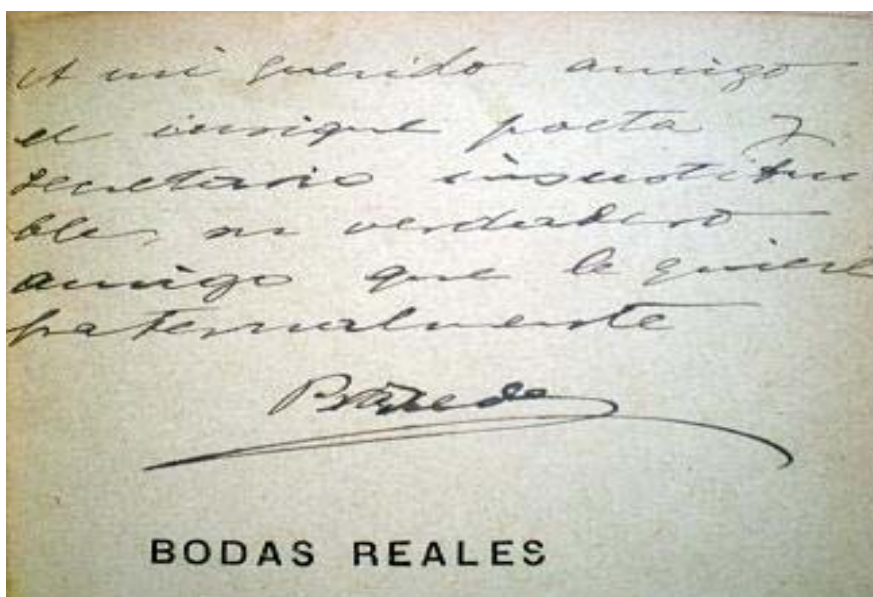 A mi querido amigo
el insigne poeta y
secretario insustitui
ble, su verdadero
amigo que le quiere
paternalmente
BODAS REALES